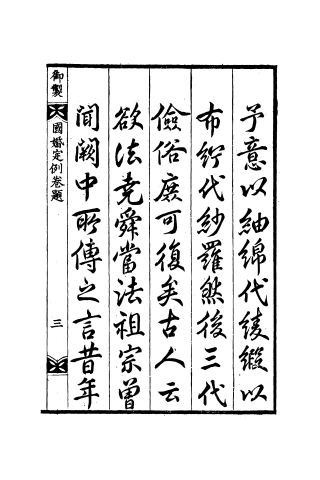 予意以紬綿代綾緞以
布紵代紗羅然後三代
儉俗庶可復矣古人云
欲法堯舜當法祖宗曾
聞闕中所傳之言昔年
御製
國婚定例卷題
三